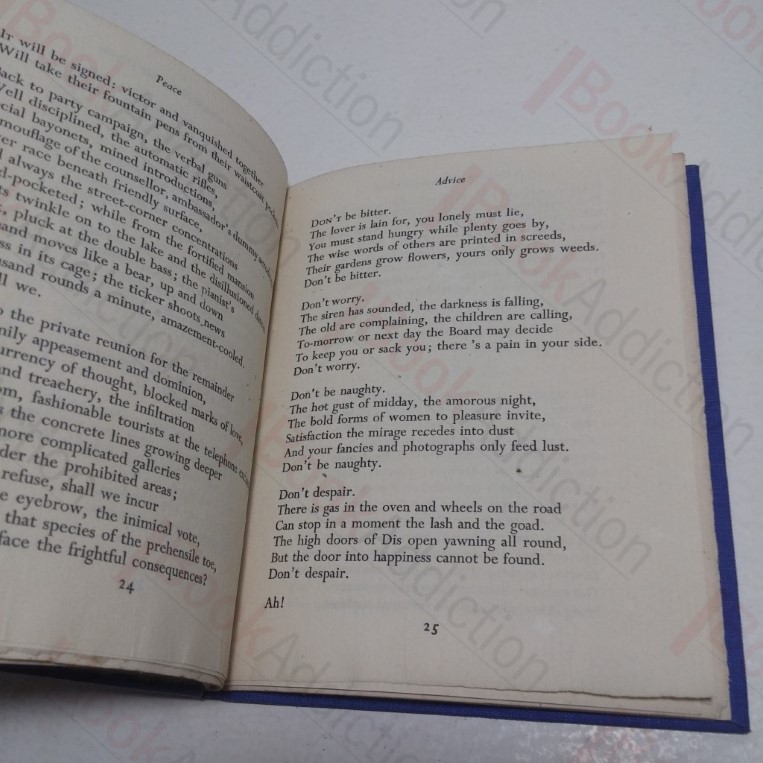 Peace
It will be signed: victor and vanquished together
Will take their fountain pens from their waistcoat
Back to party campaign, the verbal guns
Well disciplined, the automatic rifles,
cial bayonets, mined introductions,
mouflage of the counsellor, ambassador's dummy
er race beneath friendly surface,
always the street-corner concentrations
d-pocketed; while from the fortified mansion
ts twinkle on to the lake and the disillusioned
, pluck at the double bass; the pianist's
and moves like a bear, up and down
ss in its cage; the ticker shoots news
usand rounds a minute, amazement-cooled.
ll we.
o the private reunion for the remainder
mily appeasement and dominion,
urrency of thought, blocked marks of love,
and treachery, the infiltration
om, fashionable tourists at the telephone
s the concrete lines growing deeper
more complicated galleries
der the prohibited areas;
refuse, shall we incur
e eyebrow, the inimical vote,
that species of the prehensile toe,
face the frightful consequences?
24
Advice
DON'T be bitter.
The lover is lain for, you lonely must lie,
You must stand hungry while plenty goes by,
The wise words of others are printed in screeds,
Their gardens grow flowers, yours only grows weeds.
Don't be bitter.
Don't worry.
The siren has sounded, the darkness is falling,
The old are complaining, the children are calling,
To-morrow or next day the Board may decide
To keep you or sack you; there 's a pain in your side.
Don't worry.
Don't be naughty.
The hot gust of midday, the amorous night,
The bold forms of women to pleasure invite,
Satisfaction the mirage recedes into dust
And your fancies and photographs only feed lust.
Don't be naughty.
Don't despair.
There is gas in the oven and wheels on the road
Can stop in a moment the lash and the goad.
The high doors of Dis open yawning all round,
But the door into happiness cannot be found.
Don't despair.
Ah!
25
BookAddiction